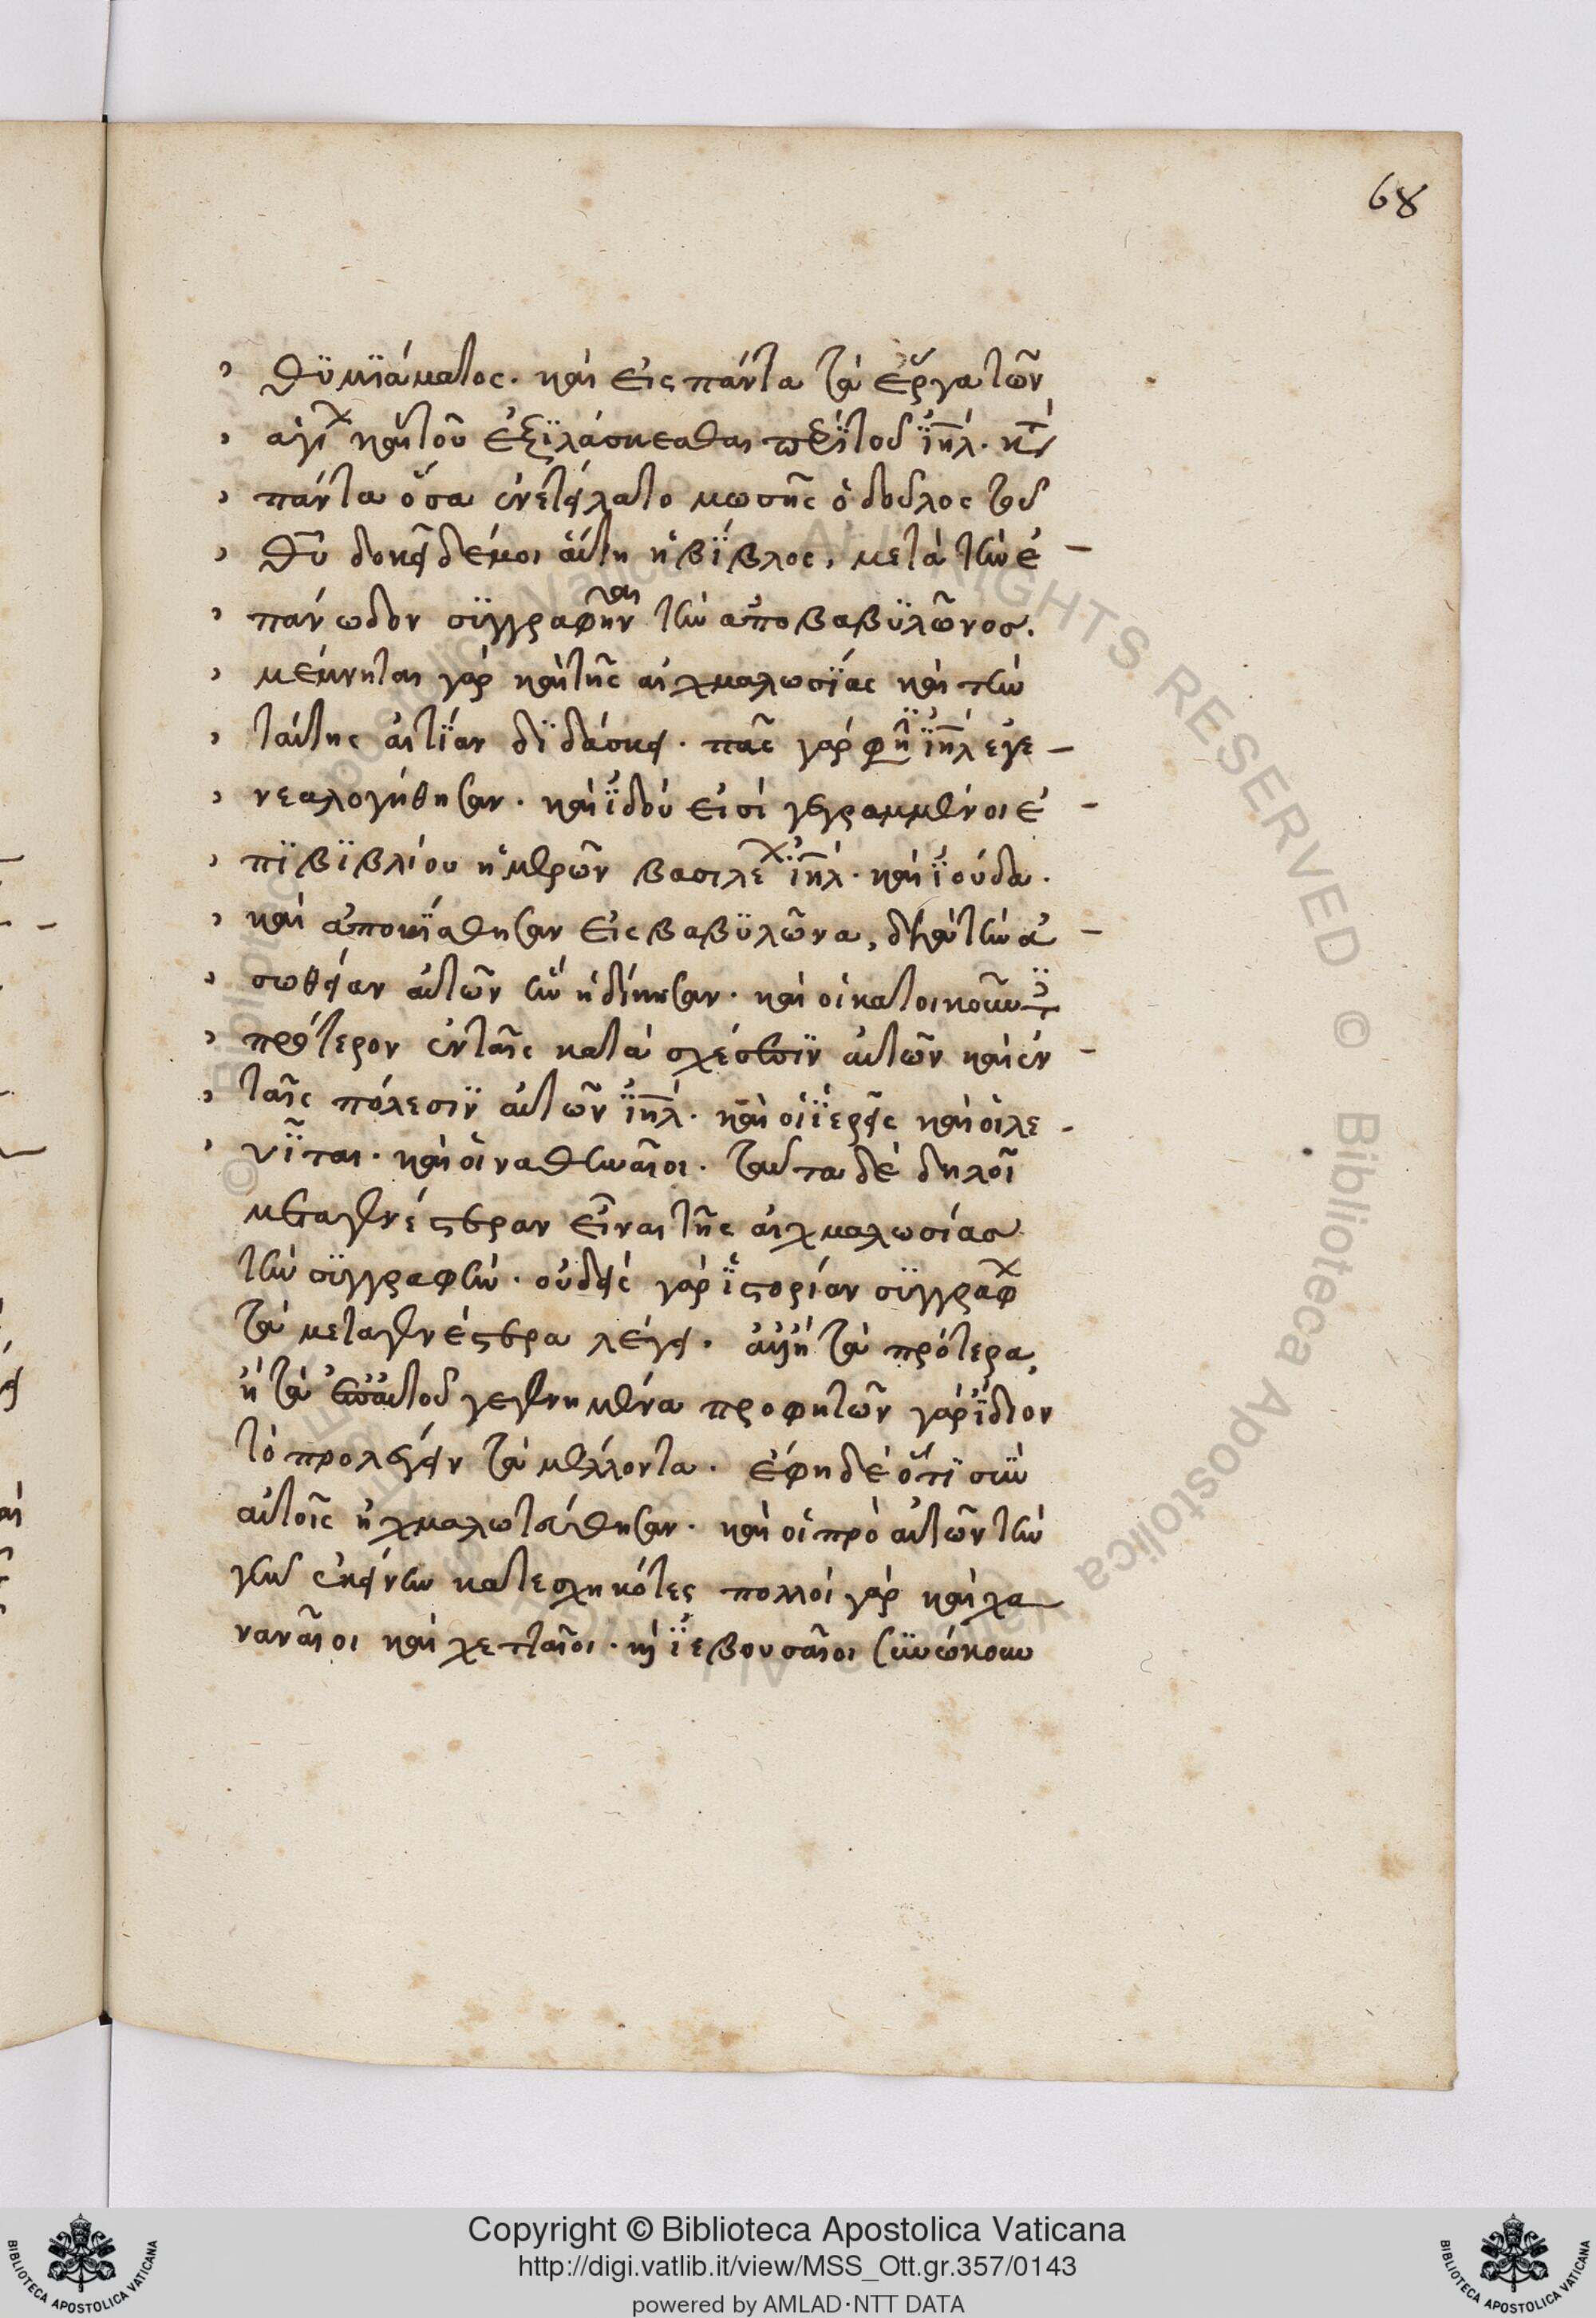 68
θυμιάματος. καὶ εἰς πάντα τὰ ἔργα τῶν
ἁγί καὶ τοῦ ἐξιλάσκεσθαι περὶ τοῦ ἰηλ. κατὰ
πάντα ὅσα ἐνετείλατο μωσῆς ὁ δοῦλος τοῦ
θῦ δοκεῖ δέ μοι αὕτη ἡ βίβλος, μετὰ τὴν ἐ
πάνωδον συγγραφῆναι τὴν ἀπο βαβυλῶνος.
μέμνηται γὰρ καὶ τῆς αἰχμαλωσίας καὶ τὴν
ταύτης αἰτίαν διδάσκει. πᾶς γάρ φη ἰηλ ἐγε
νεαλογήθησαν. καὶ ἰδού εἰσί γεγραμμένοι ἐ
πὶ βιβλίου ἡμερῶν βασιλέ ἰηλ. καὶ ἰούδα.
καὶ ἀποικίσθησαν εἰς βαβυλῶνα, διὰ τὴν ἀ
σωθείαν αὐτῶν ἣν ἠδίκησαν. καὶ οἱ κατοικοῦντες
πρότερον ἐν ταῖς κατὰ σχέσεσιν αὐτῶν καὶ ἐν
ταῖς πόλεσιν αὐτῶν ἰηλ. καὶ οἱ ἱερεῖς καὶ οἱ λε
υῖται. καὶ οἱ ναθηναῖοι. ταῦτα δὲ δηλοῖ
μεταγενέστεραν εἶναι τῆς αἰχμαλωσίας
τὴν συγγραφήν. οὐδείς γὰρ ἱστορίαν συγγράφ
τὰ μεταγενέστερα λέγει. ἀλλ' ἢ τὰ πρότερα,
ἢ τὰ ἐπ' αὐτοῦ γεγενημένα προφητῶν γὰρ ἴδιον
τὸ προλέγειν τὰ μέλλοντα. ἔφη δὲ ὅτι σὺν
αὐτοῖς ἠχμαλωτεύθησαν. καὶ οἱ πρὸ αὐτῶν τὴν
γῆν ἐκείνην κατεσχηκότες πολλοί γὰρ καὶ χα
ναναῖοι καὶ χετταῖοι. καὶ ἰεβουσαῖοι συνώκουν
Copyright © Biblioteca Apostolica Vaticana
http://digi.vatlib.it/view/MSS_Ott.gr.357/0143
powered by AMLAD·NTT DATA